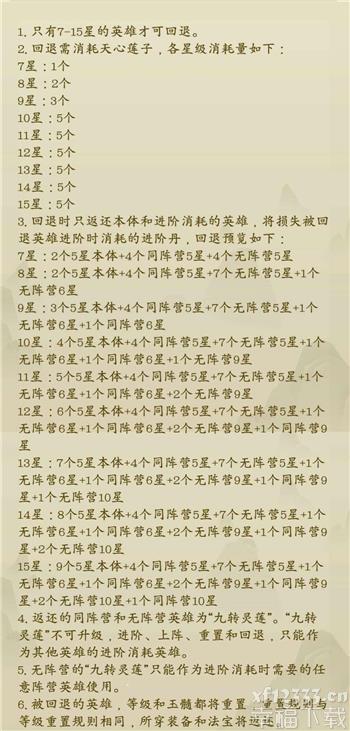 1. 只有7-15星的英雄才可回退。
2. 回退需消耗天心莲子，各星级消耗量如下：
7星：1个
8星：2个
9星：3个
10星：5个
11星：5个
12星：5个
13星：5个
14星：5个
15星：5个
3. 回退时只返还本体和进阶消耗的英雄，将损失被回
退英雄进阶时消耗的进阶丹，回退预览如下：
7星：2个5星本体+4个同阵营5星+4个无阵营5星
8星：2个5星本体+4个同阵营5星+7个无阵营5星+1个
无阵营6星
9星：3个5星本体+4个同阵营5星+7个无阵营5星+1个
无阵营6星+1个同阵营6星
10星：4个5星本体+4个同阵营5星+7个无阵营5星+1个
无阵营6星+1个同阵营6星+1个无阵营9星
11星：5个5星本体+4个同阵营5星+7个无阵营5星+1个
无阵营6星+1个同阵营6星+2个无阵营9星
12星：6个5星本体+4个同阵营5星+7个无阵营5星+1个
无阵营6星+1个同阵营6星+2个无阵营9星+1个同阵营9
星
13星：7个5星本体+4个同阵营5星+7个无阵营5星+1个
无阵营6星+1个同阵营6星+2个无阵营9星+1个同阵营9
星+1个无阵营10星
14星：8个5星本体+4个同阵营5星+7个无阵营5星+1个
无阵营6星+1个同阵营6星+2个无阵营9星+1个同阵营9
星+2个无阵营10星
15星：9个5星本体+4个同阵营5星+7个无阵营5星+1个
无阵营6星+1个同阵营6星+2个无阵营9星+1个同阵营9
星+2个无阵营10星+1个同阵营10星
4. 返还的同阵营和无阵营英雄为“九转灵莲”。“九转
灵莲”不可升级，进阶、上阵、重置和回退，只能作
为其他英雄的进阶消耗英雄。
5. 无阵营的“九转灵莲”只能作为进阶消耗时需要的任
意阵营英雄使用。
6. 被回退的英雄，等级和玉髓都将重置，重置规则与
等级重置规则相同，所穿装备和法宝将返还
xf12333.cn
幸福下载